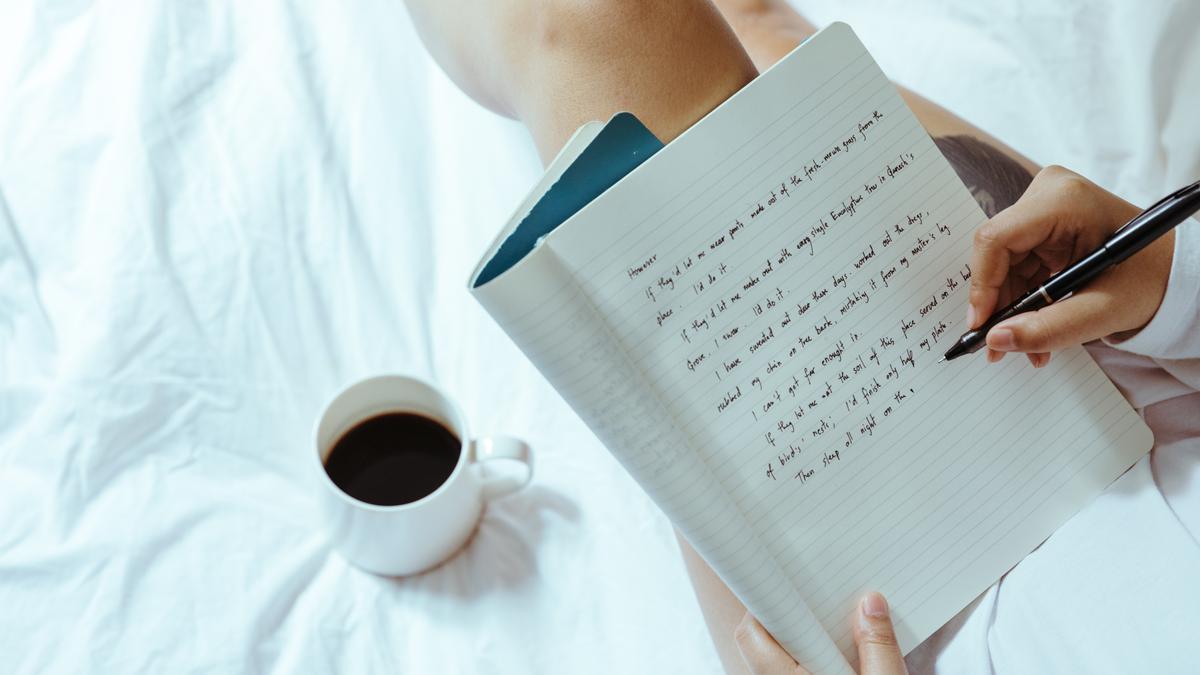 However
If they'd let me wear pants made out of the fresh-mown grass from the
place I'd do it.
If they'd let me make out with every single Eucalyptus tree in
Grove. I swear. I'd do it.
I have sweated out dear these days. worked out the dregs,
my chin on tree bark, mistaking it from my master's leg
I can't get far enough in.
If they let me eat the soil of this place served on the
of birds' nests; I'd finish only half my plate.
Then sleep all night on the